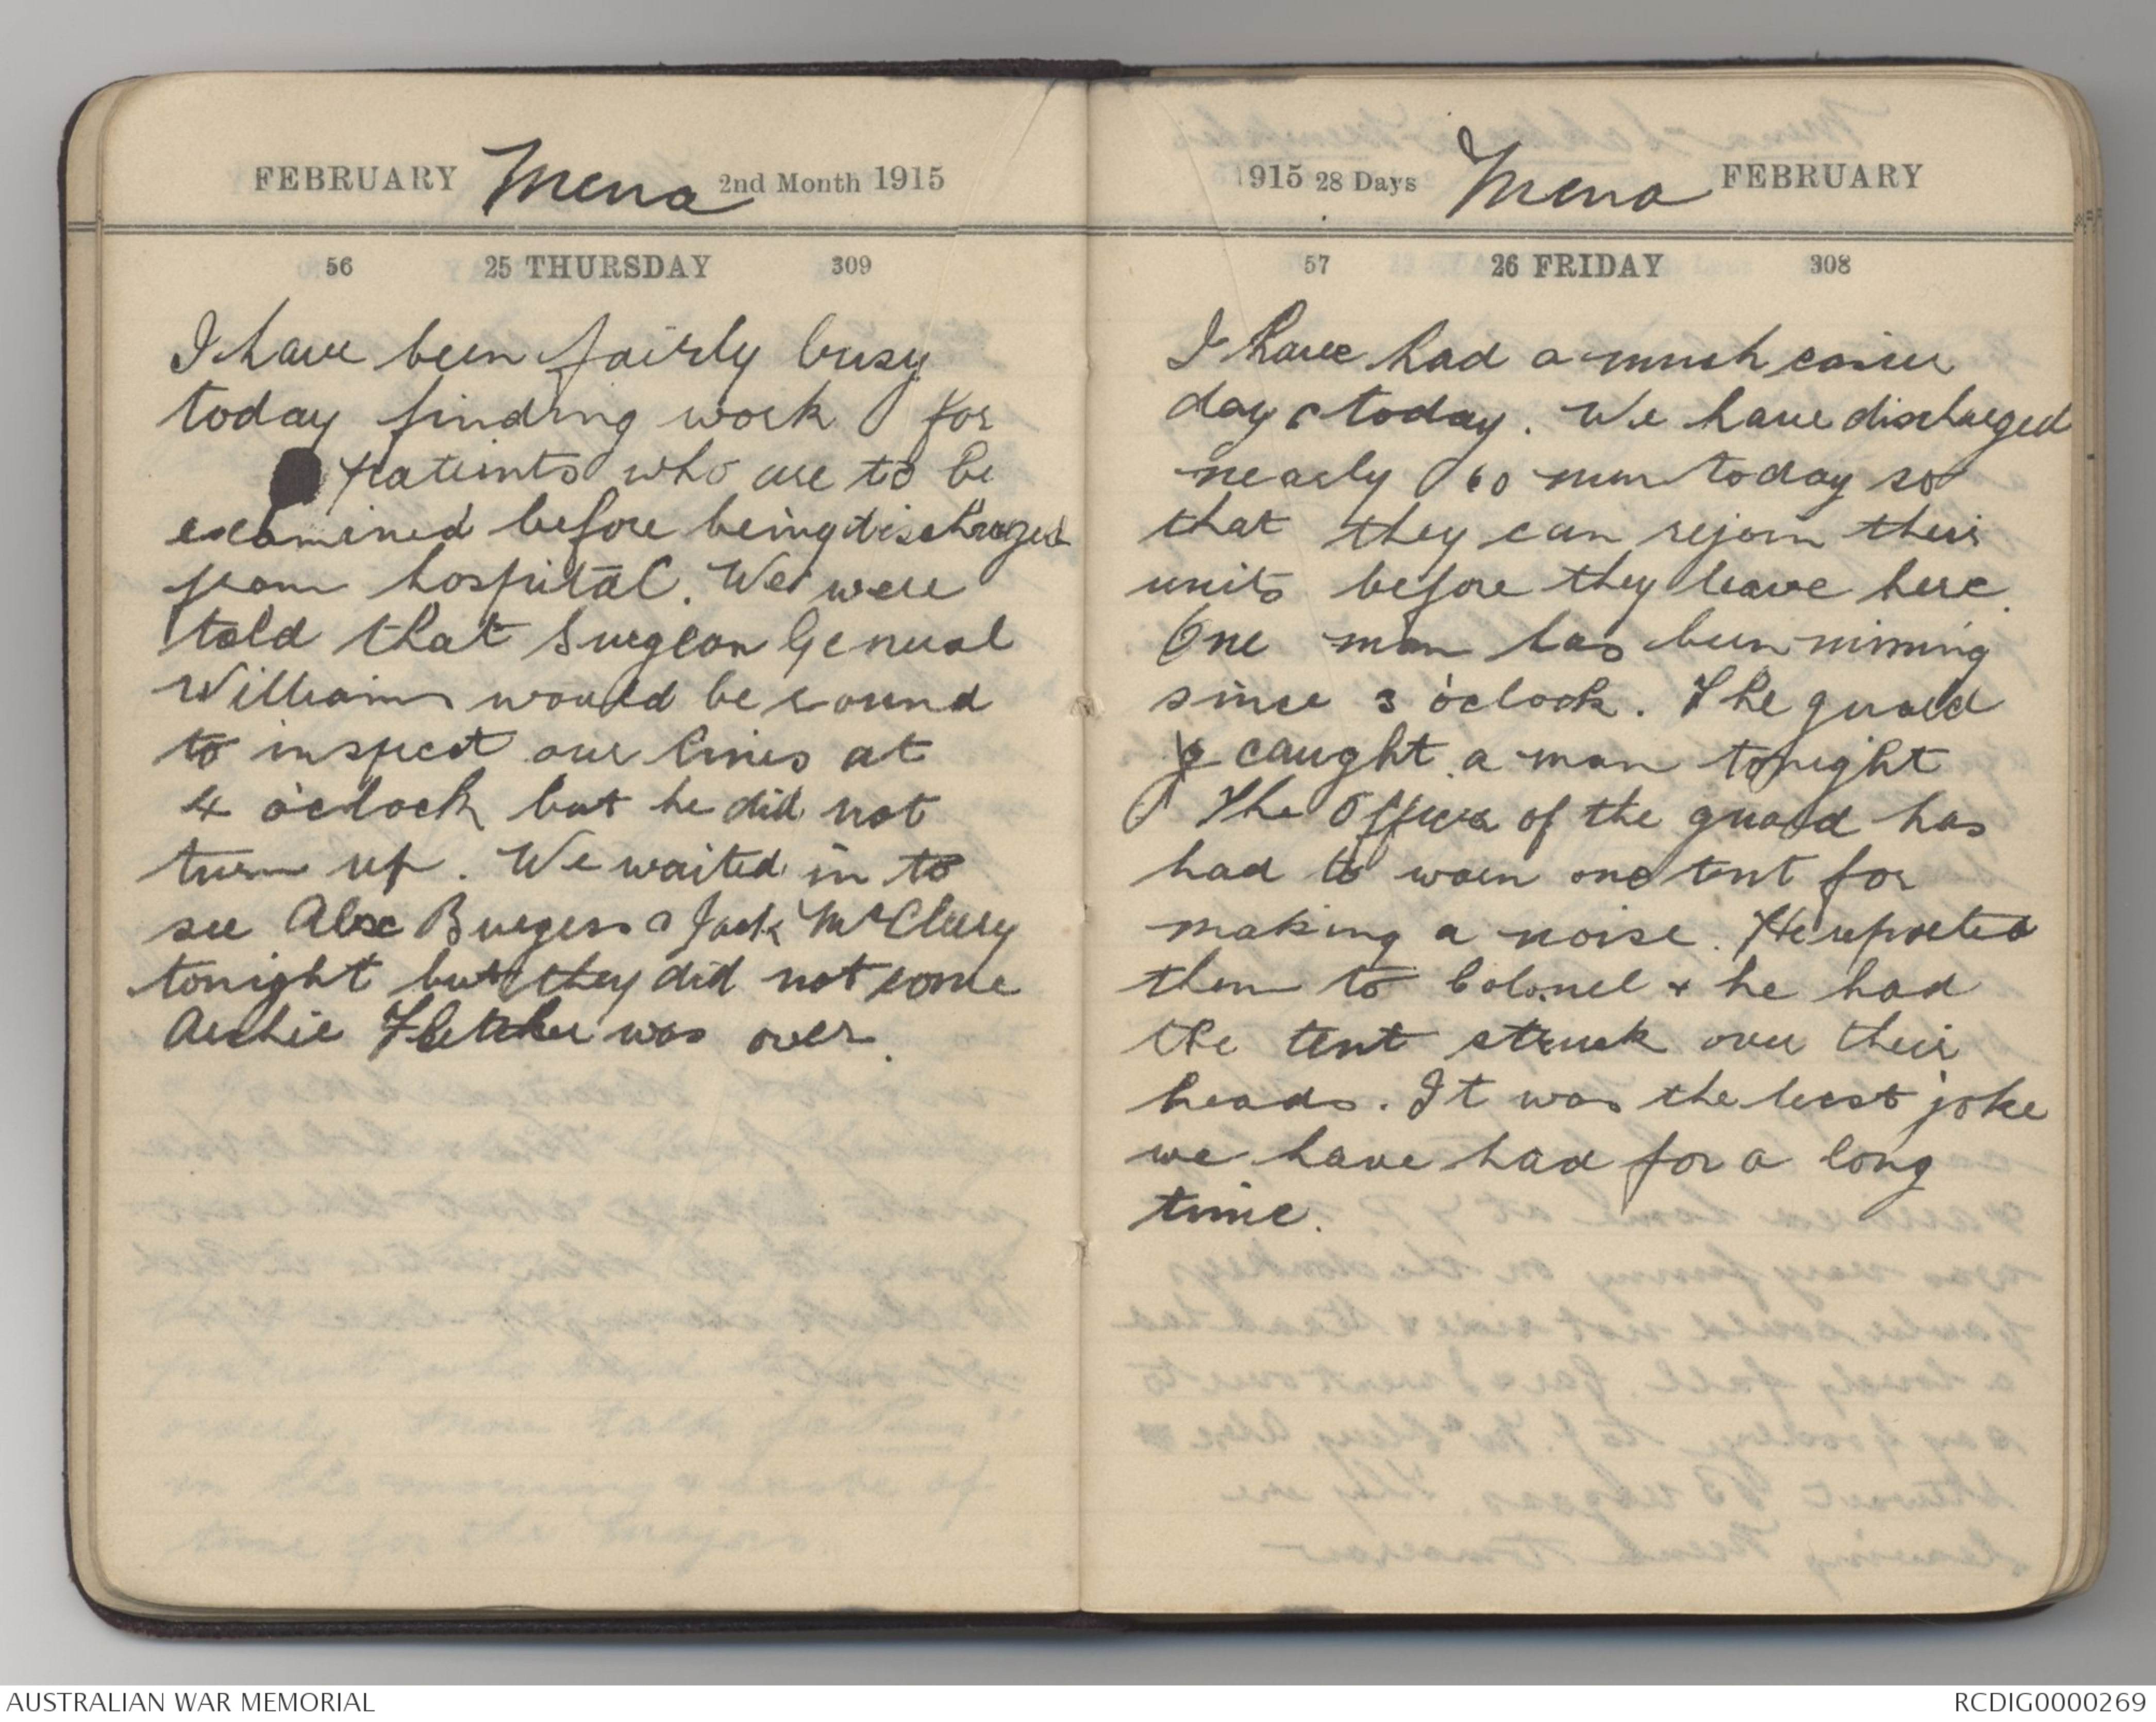 FEBRUARY Mena 2nd Month 1915
56 25 THURSDAY 309
I have been fairly busy
today finding work for
patients who are to be
examined before being discharged
from hospital. We were
told that Surgeon General
Williams would be round
to inspect our lines at
4 o'clock but he did not
turn up. We waited in to
see Alex Burgess & Jack McCleery
tonight but they did not come
Archie Fletcher was over.
1915 28 Days Mena FEBRUARY
57 26 FRIDAY 308
I have had a much easier
day today. We have discharged
nearly 60 men today so
that they can rejoin their
units before they leave here.
One man has been missing
since 3 o'clock. The guard
caught a man tonight
The Officer of the guard has
had to warn one tent for
making a noise. He reported
them to Colonel & he had
the tent struck over their
heads. It was the best joke
we have had for a long
time.
AUSTRALIAN WAR MEMORIAL
RCDIG0000269